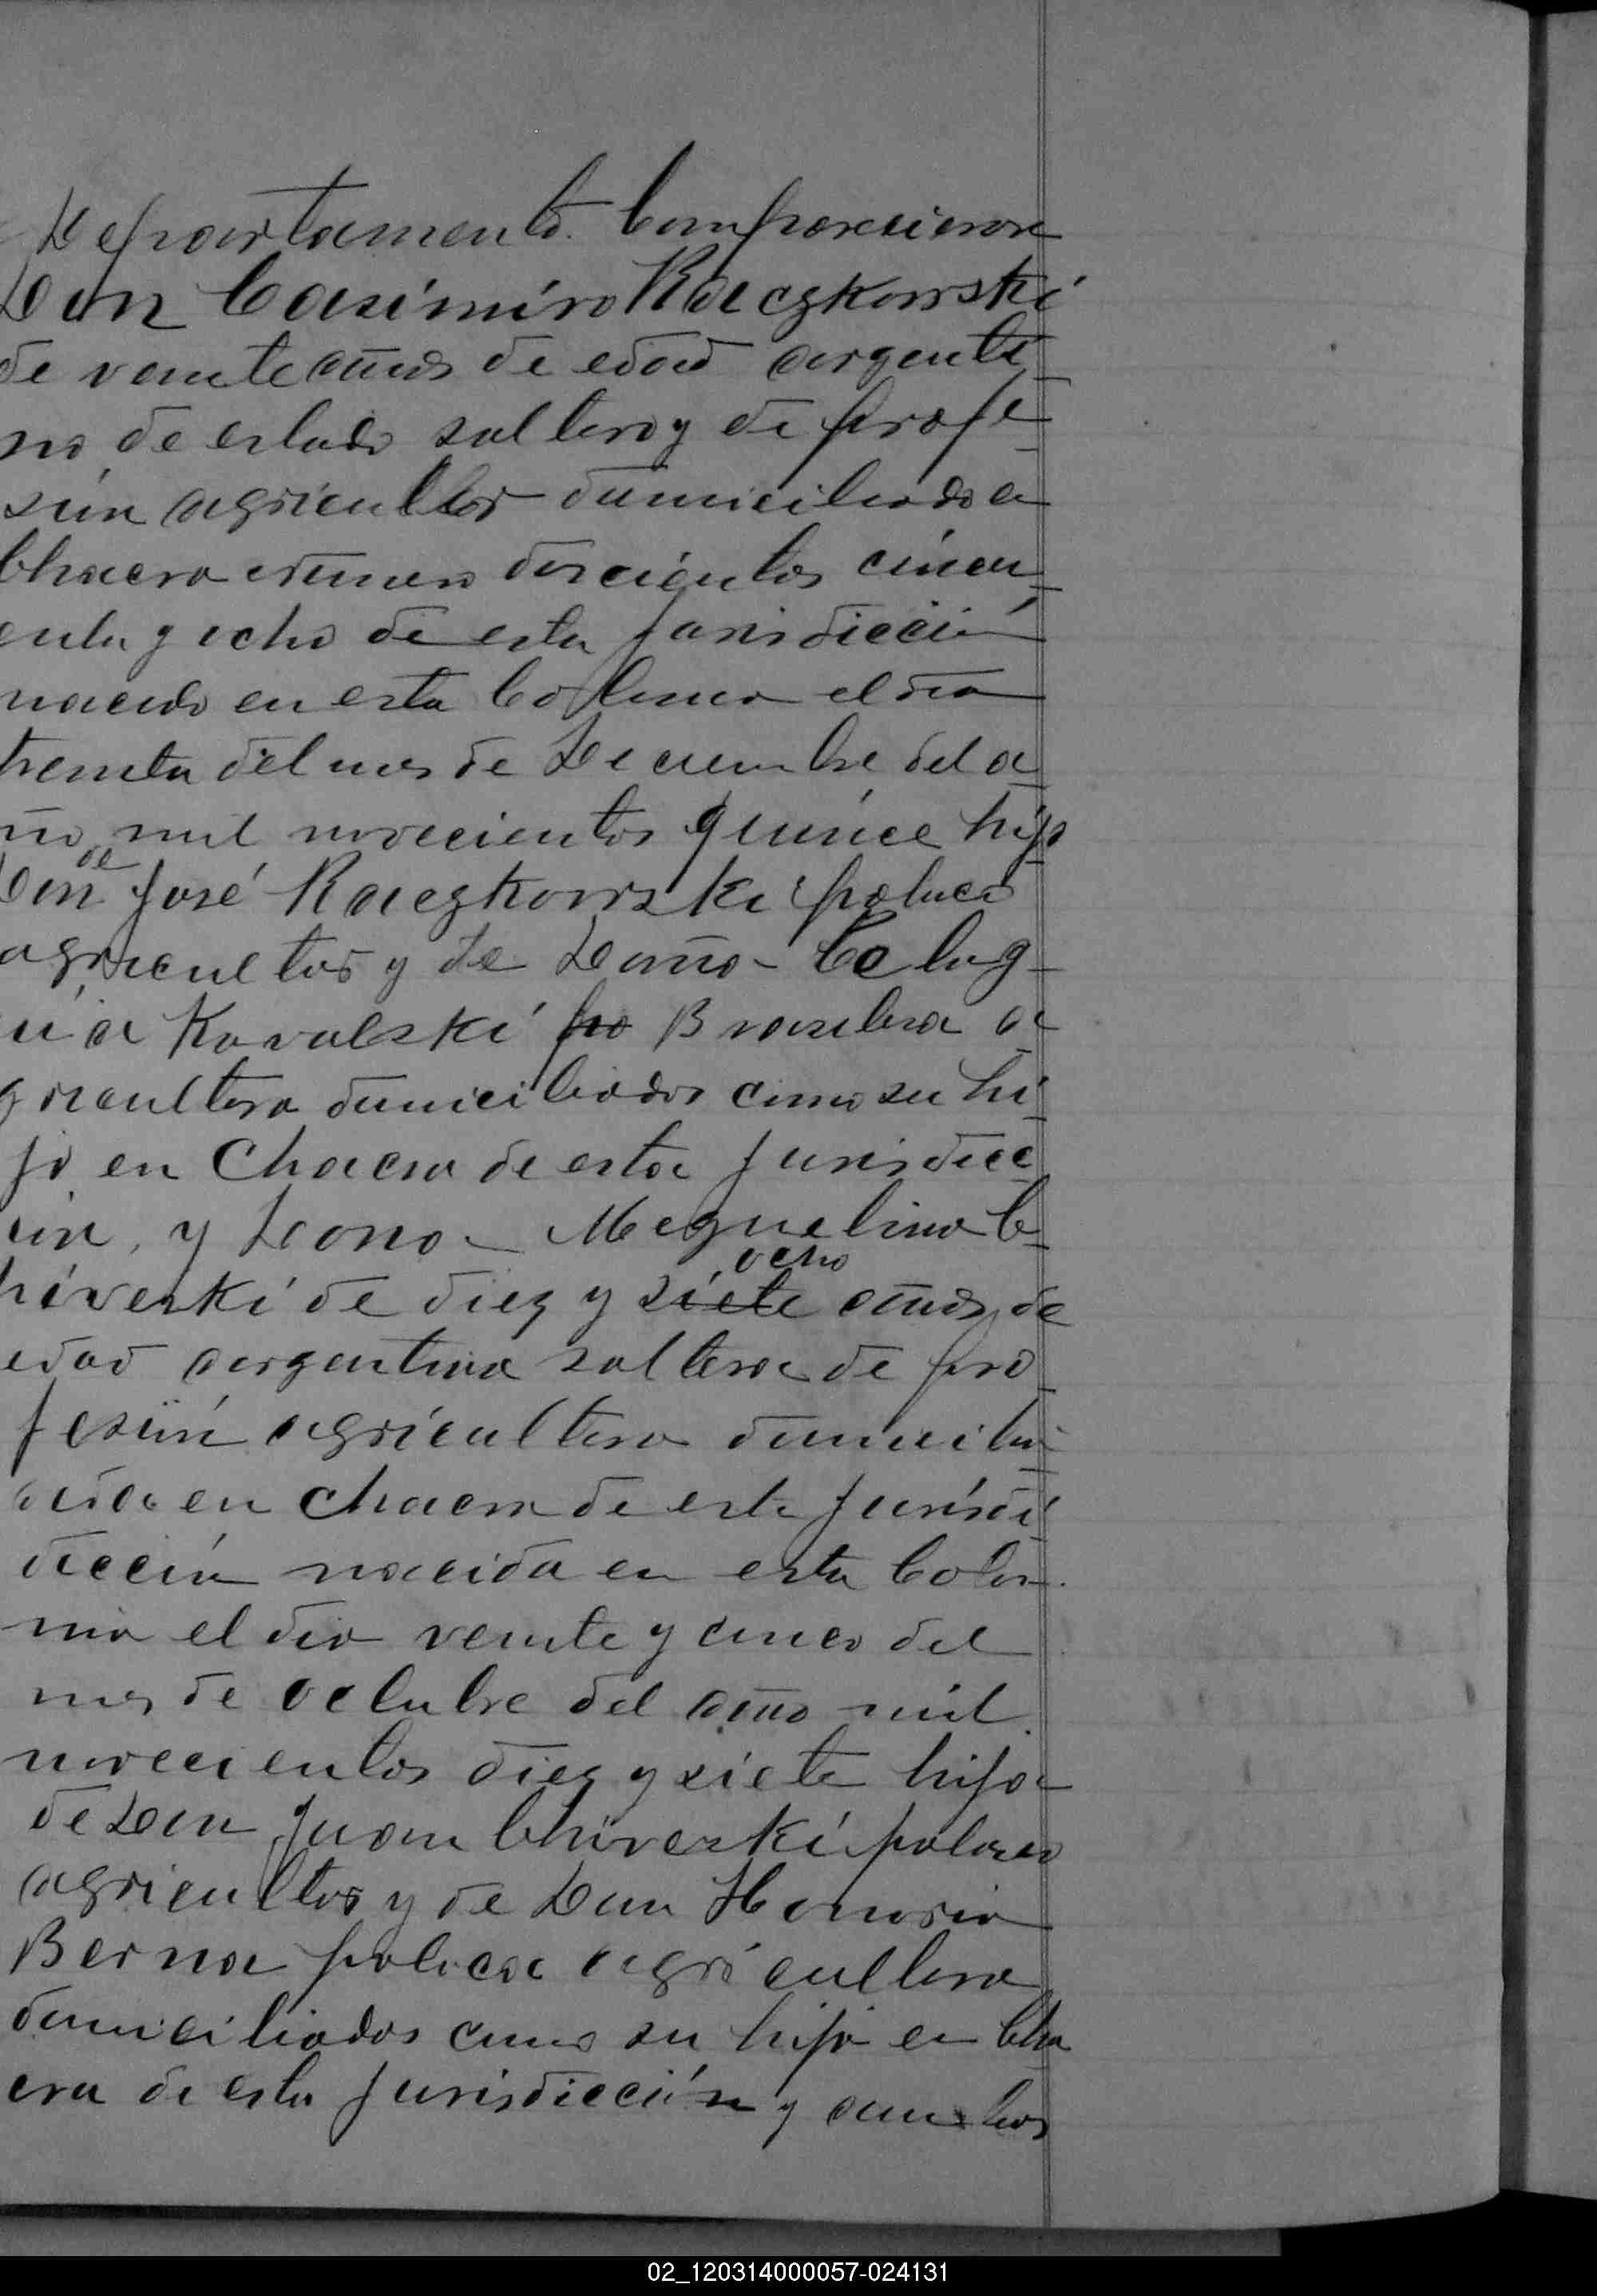 Departamento. Comparecieron
Don Casimiro Raczkowski
de veinte años de edad argenti
no de estado soltero y de profe
sión agricultor domiciliado en
Chacra número doscientos cincu
enta y ocho de esta Jurisdicción
nacido en esta Colonia el día
treinta del mes de Diciembre del a
ño mil novecientos quince hijo
de
Don José Raczkowski polaco
agricultor y de Doña Celog
nia Kovalski po Brasilera a
gricultora domiciliados como su hi
jo en Chacra de esta Jurisdicc
ión, y Doña Miguelina C
ocho
hiverki de diez y siete años de
edad argentina soltera de pro
fesión agricultora domicili
ada en chacra de esta Jurisdi
dicción nacida en esta Colo
nia el día veinte y cinco del
mes de octubre del año mil
novecientos diez y siete hija
de Don Juan Chiverki polaco
agricultor y de Don Honoria
Berna polaca agricultora
domiciliados como su hija en Cha
cra de esta Jurisdicción y ambos
02_120314000057-024131